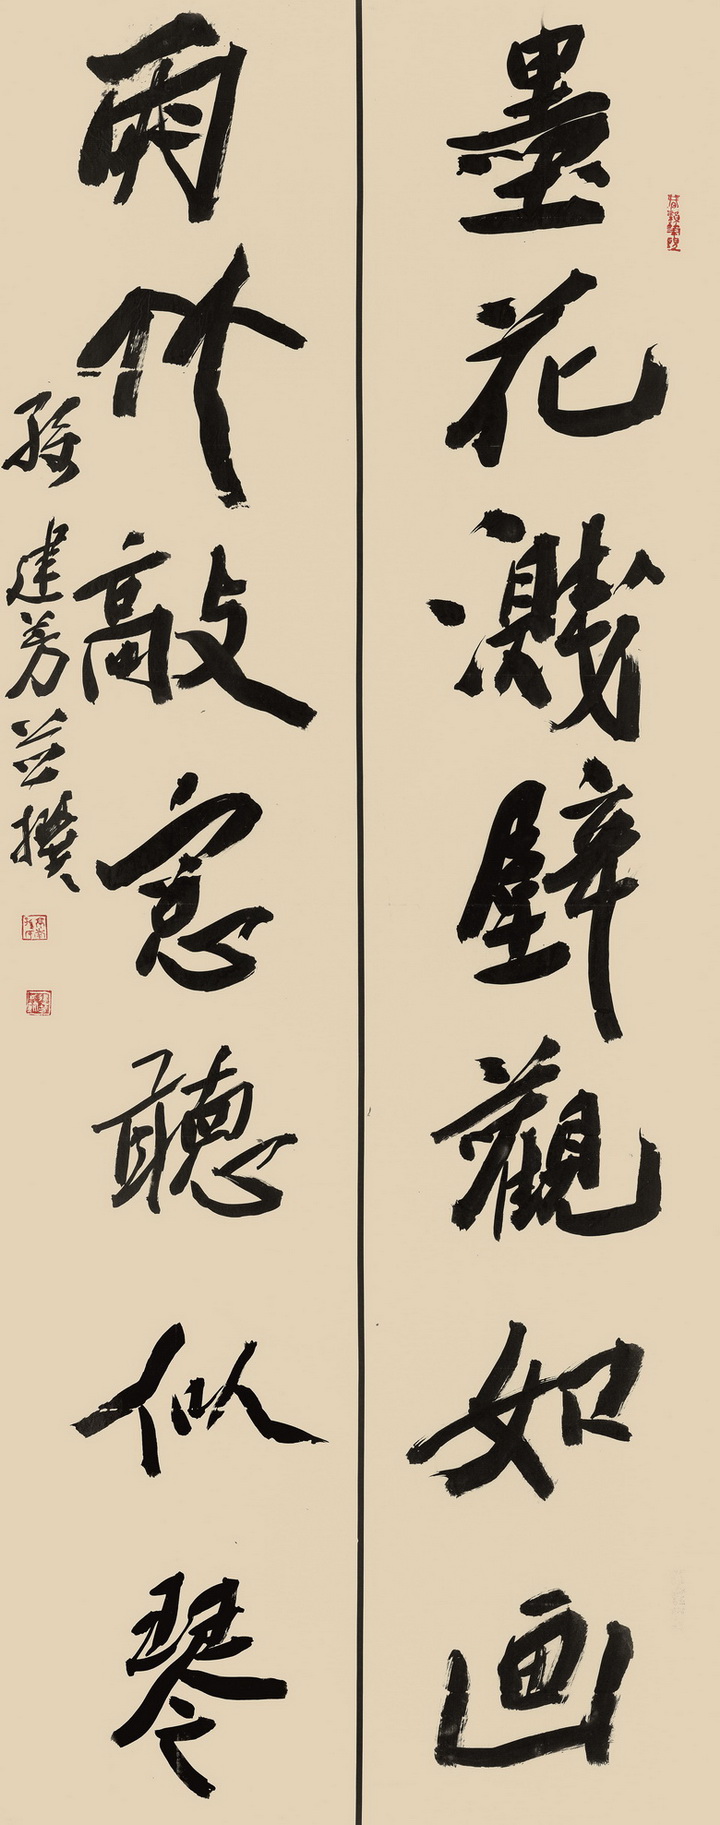 墨花溅壁觀如画
雨竹敲窓聽似琴
孫建勇并撰